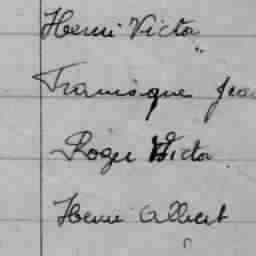 Henri Victor
"
Françoque Jea
Roger Victor
Henri Albert